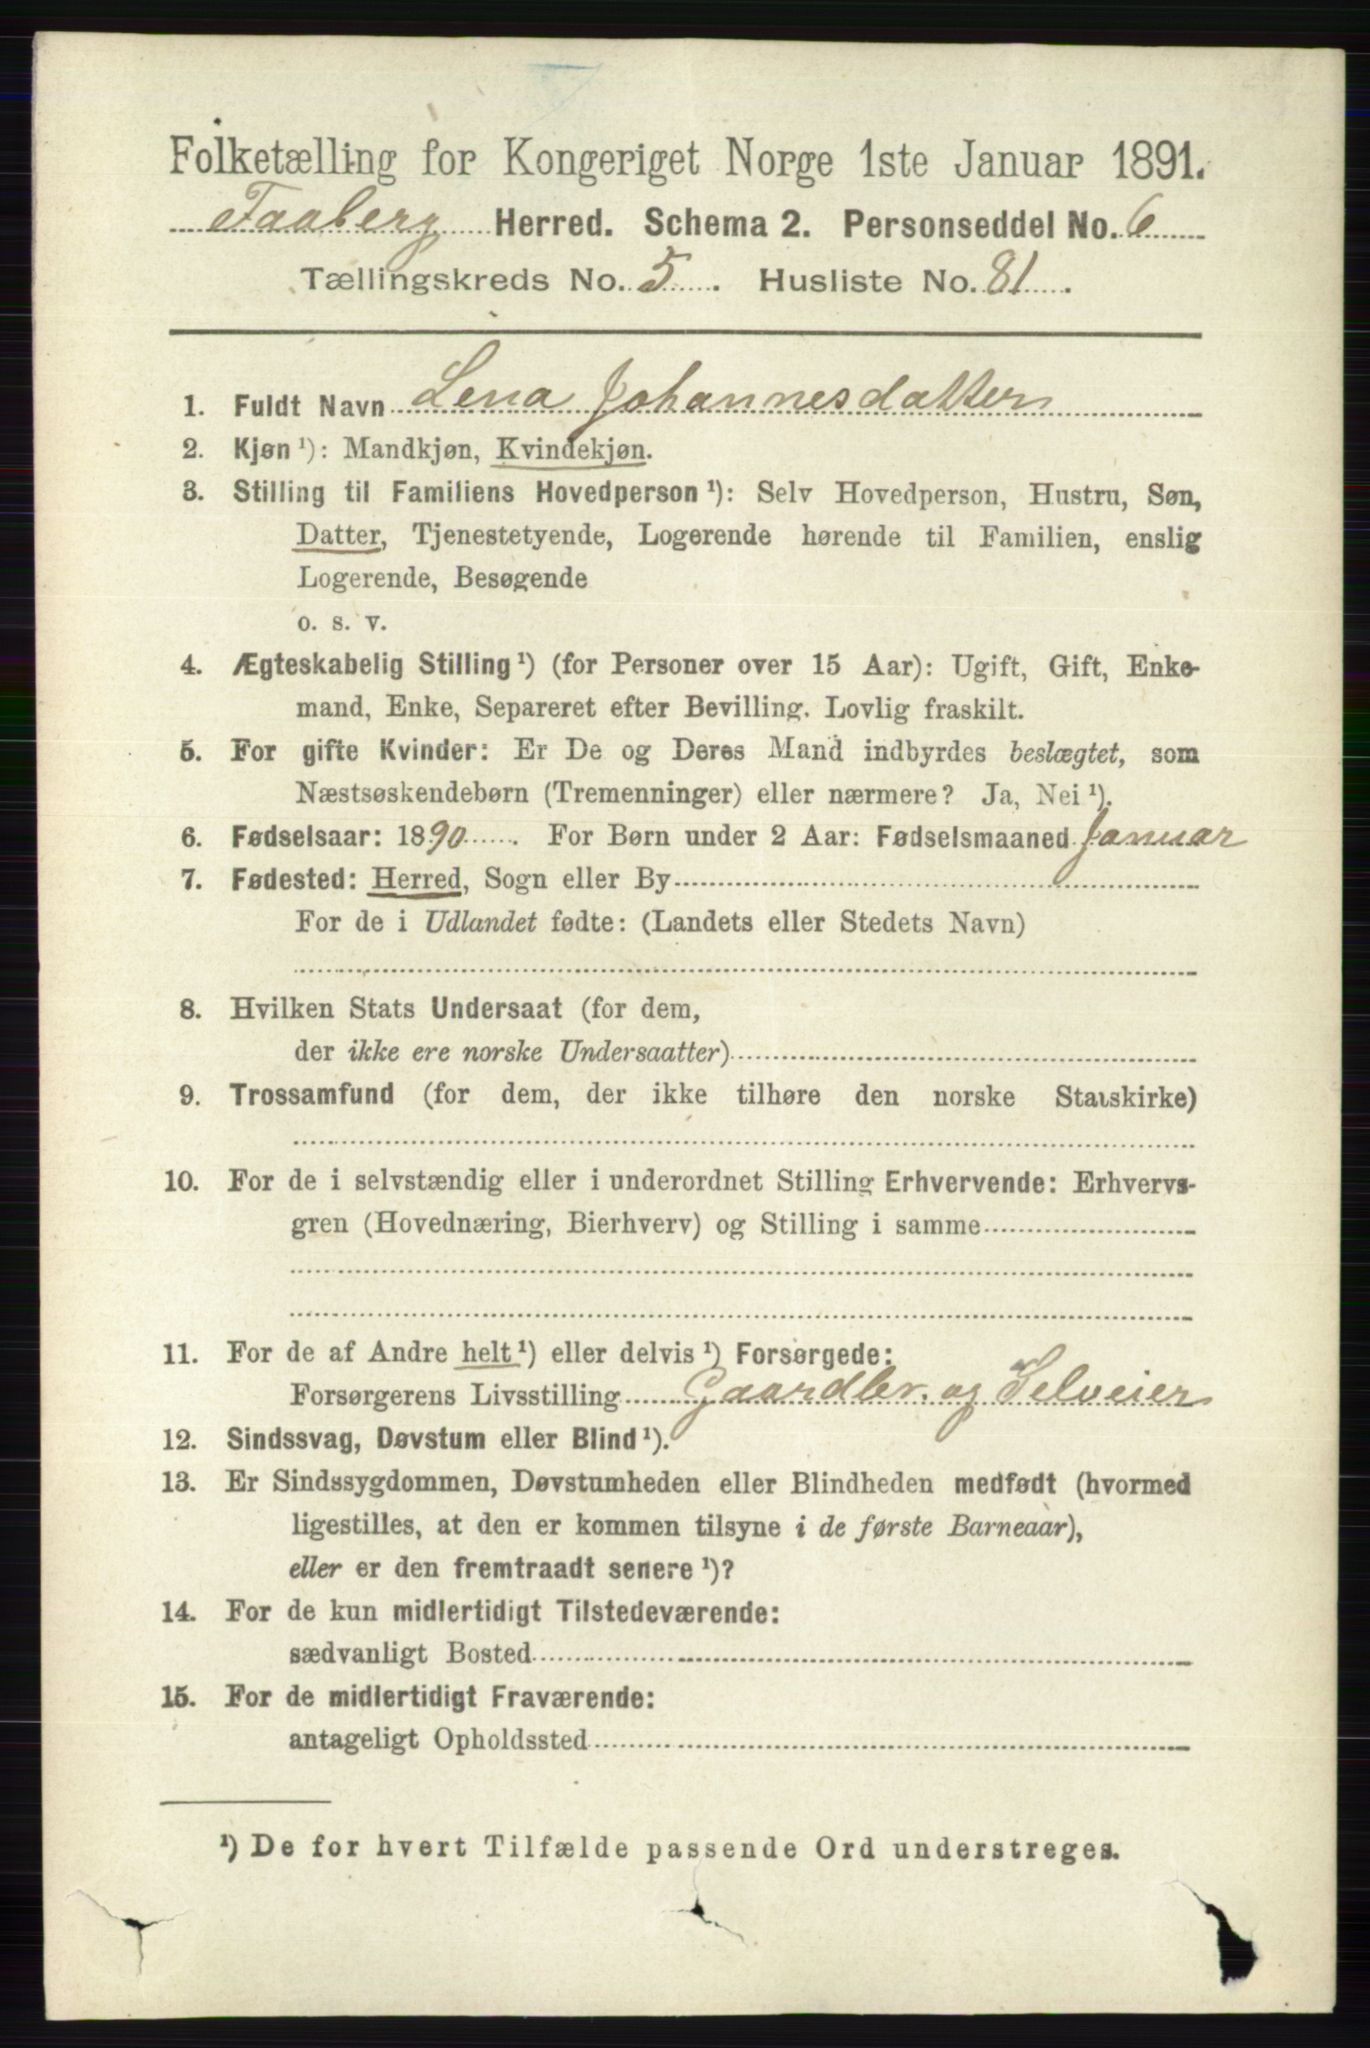 Folketælling for Kongeriget Norge 1ste Januar 1891.
Faaberg Herred. Schema 2. Personseddel No. 6
Tællingskreds No. 5. Husliste No. 81.
1. Fuldt Navn Lena Johannesdatter
2. Kjøn¹): Mandkjøn, Kvindekjøn.
3. Stilling til Familiens Hovedperson¹): Selv Hovedperson, Hustru, Søn,
Datter, Tjenestetyende, Logerende hørende til Familien, enslig
Logerende, Besøgende
o. s. v.
4. Ægteskabelig Stilling¹) (for Personer over 15 Aar): Ugift, Gift, Enke-
mand, Enke, Separeret efter Bevilling. Lovlig fraskilt.
5. For gifte Kvinder: Er De og Deres Mand indbyrdes beslægtet, som
Næstsøskendebørn (Tremenninger) eller nærmere? Ja, Nei¹).
6. Fødselsaar: 1890. For Børn under 2 Aar: Fødselsmaaned Januar
7. Fødested: Herred, Sogn eller By
For de i Udlandet fødte: (Landets eller Stedets Navn)
8. Hvilken Stats Undersaat (for dem,
der ikke ere norske Undersaatter)
9. Trossamfund (for dem, der ikke tilhøre den norske Statskirke)
10. For de i selvstændig eller i underordnet Stilling Erhvervende: Erhvervs-
gren (Hovednæring, Bierhverv) og Stilling i samme
11. For de af Andre helt¹) eller delvis¹) Forsørgede:
Forsørgerens Livsstilling Gaardbr. og Selveier
12. Sindssvag, Døvstum eller Blind¹).
13. Er Sindssygdommen, Døvstumheden eller Blindheden medfødt (hvormed
ligestilles, at den er kommen tilsyne i de første Barneaar),
eller er den fremtraadt senere¹)?
14. For de kun midlertidigt Tilstedeværende:
sædvanligt Bosted
15. For de midlertidigt Fraværende:
antageligt Opholdssted
¹) De for hvert Tilfælde passende Ord understreges.